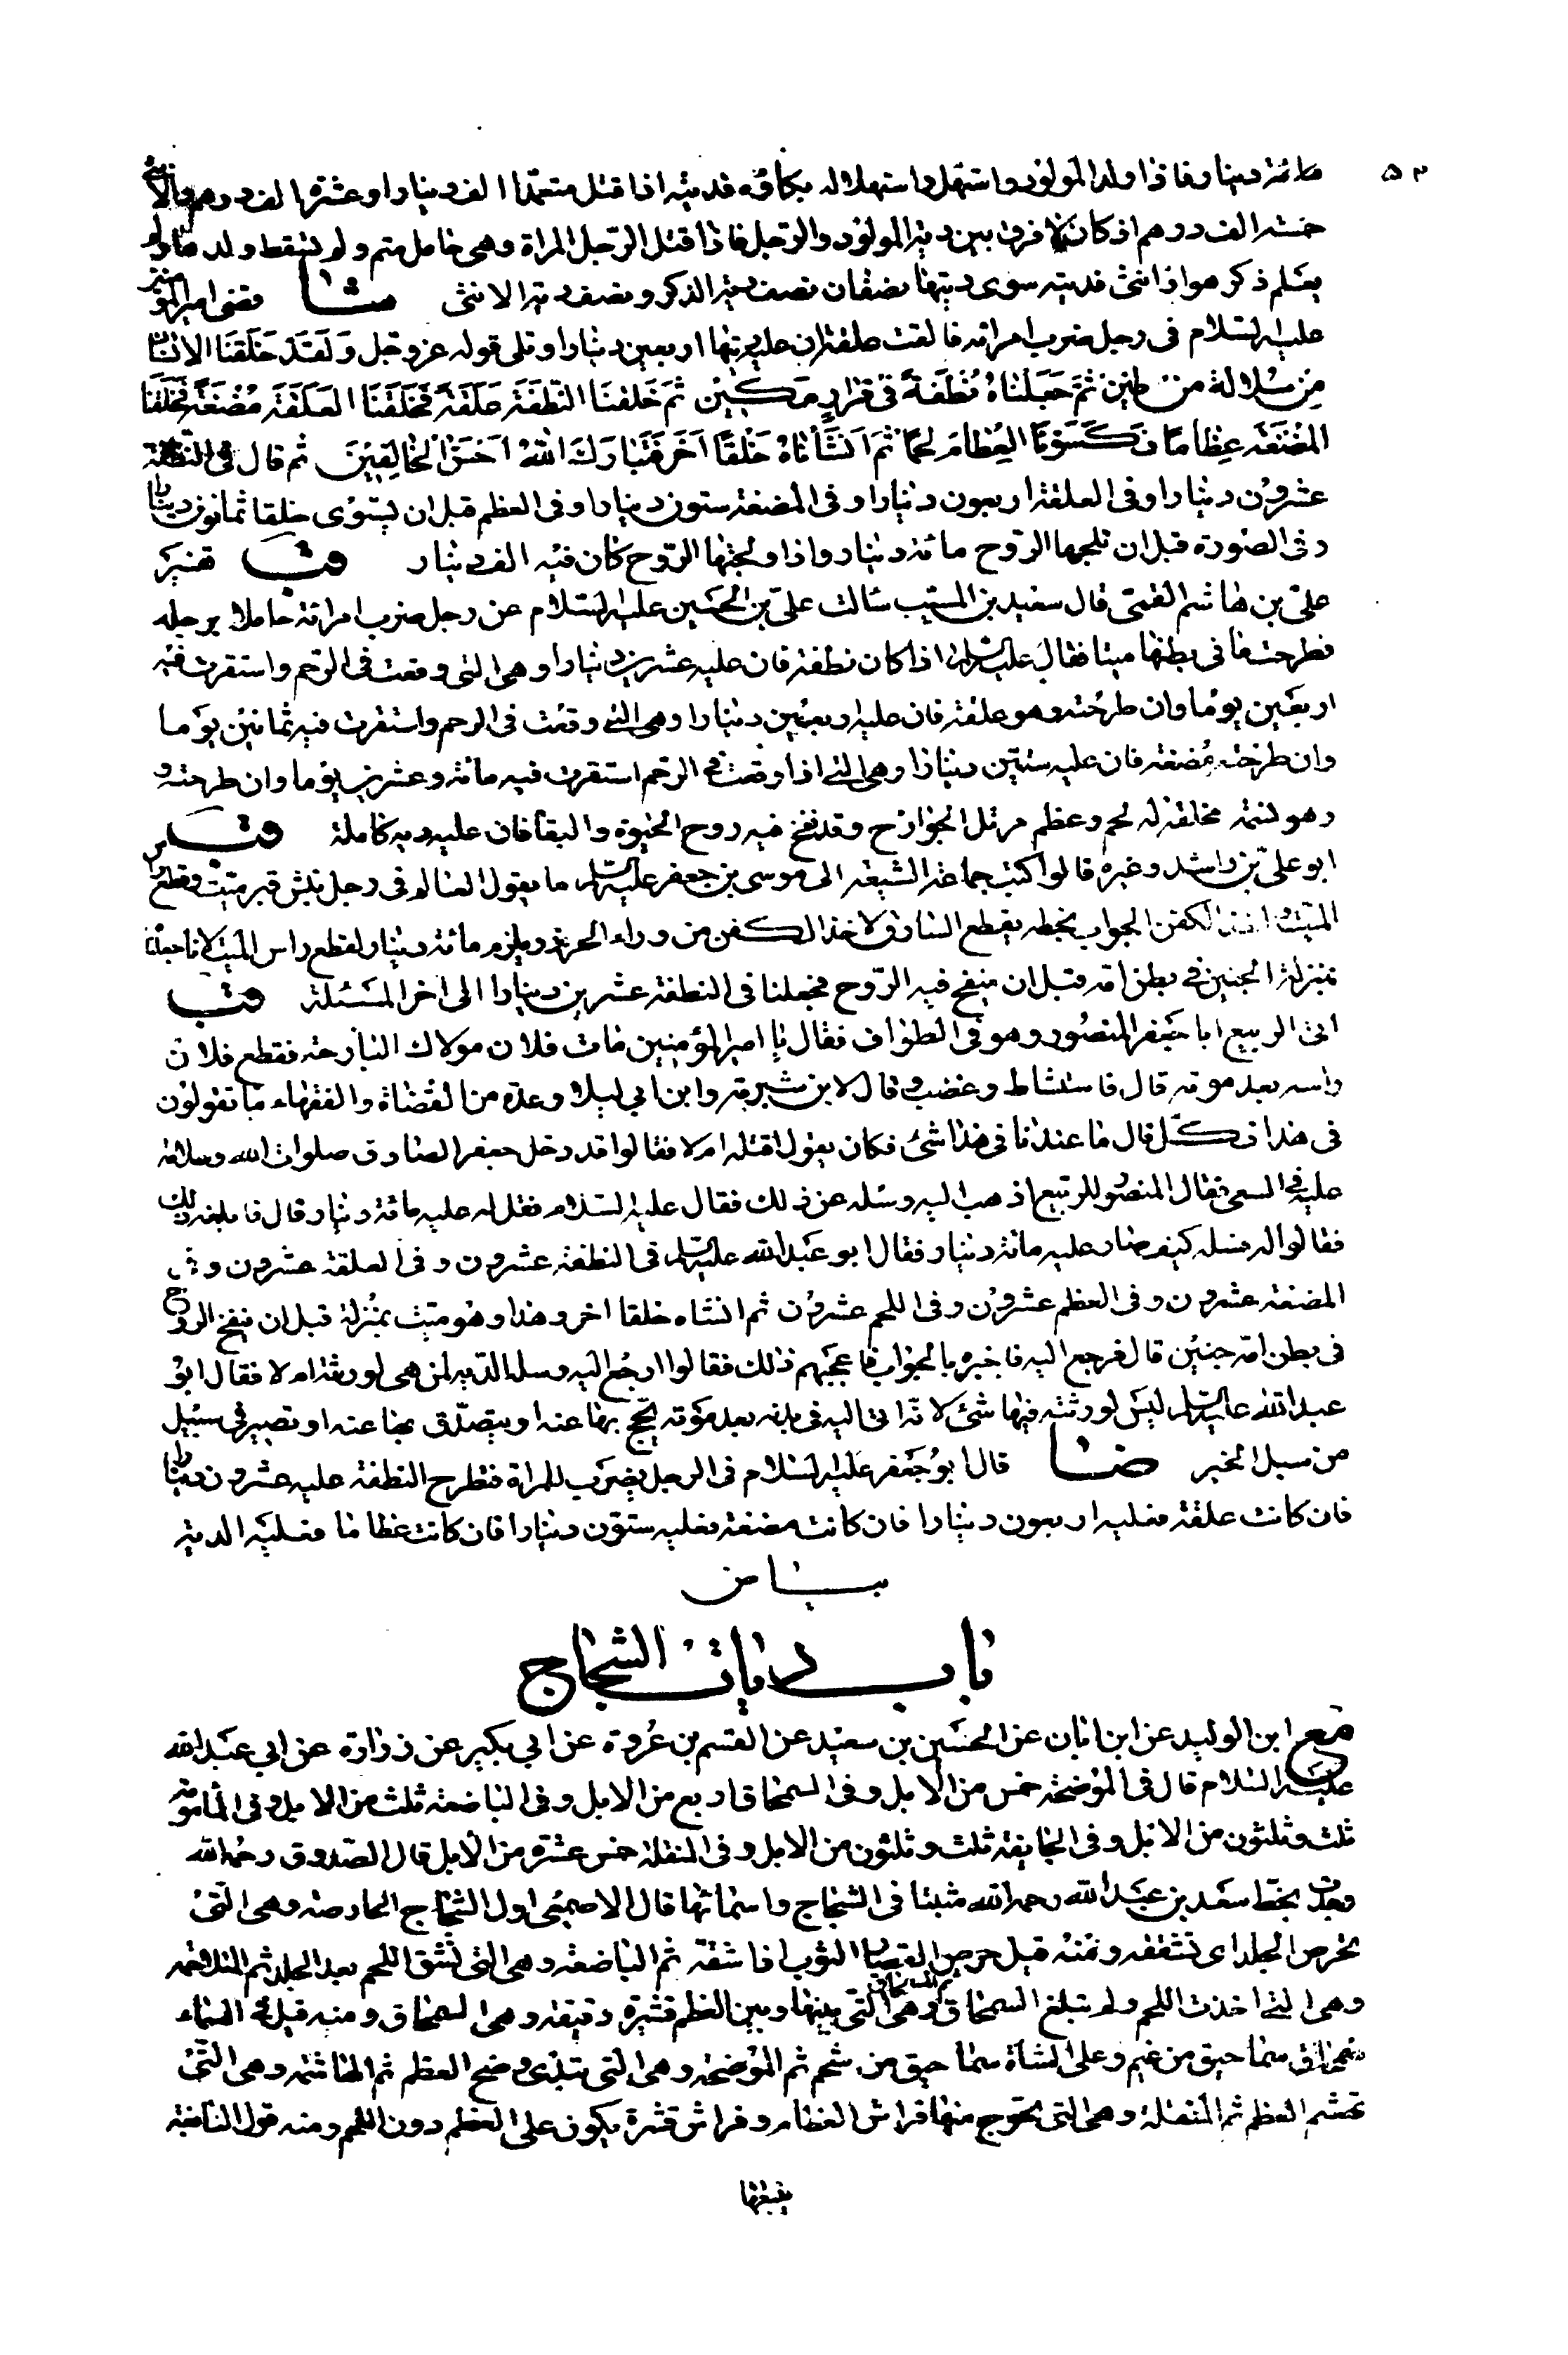 ٥٣
مائة دينار فاذا ولد المولود واستهل واستهلاله بكاؤه فديته اذا قتل متعمدا الف دينار او عشرة الف درهم والانثى
خمسة الف درهم اذ كان لا فرق بين دية المولود والرجل فاذا قتل الرجل المراة وهى حامل متم ولم تسقط ولدها ولم
يعلم ذكر هو او انثى فديته سوى ديتها نصفان نصف دية الذكر ونصف دية الانثى شا قضى امير المؤمنين
عليه السلام فى رجل ضرب امراته فالقت علقة ان عليه ديتها اربعين دينارا وتلى قوله عز وجل وَلَقَدْ خَلَقْنَا الانْسَانَ
مِنْ سُلالة من طين ثُمَّ جَعَلْنَاهُ نُطْفَةً فى قَرَارٍ مَكِينٍ ثُمَّ خَلَقْنَا النُّطْفَةَ عَلَقَةً فَخَلَقْنَا العَلَقَةَ مُضْغَةً فَخَلَقْنَا
المُضْغَةَ عِظَامًا فَكَسَوْنَا العِظَامَ لَحْمًا ثُمَّ اَنْشَأْنَاهُ خَلْقًا اَخَرَ فَتَبَارَكَ اللهُ اَحْسَنُ الخَالِقِينَ ثم قال فى النطفة
عشرون دينارا وفى العلقة اربعون دينارا وفى المضغة ستون دينارا وفى العظم قبل ان يستوى خلقا ثمانون دينارا
وفى الصورة قبل ان تلجها الروح مائة دينار واذا ولجتها الروح كان فيه الف دينار قب تفسير
على بن هاشم القمى قال سعيد بن المسيب سالت على بن الحسين عليه السلام عن رجل ضرب امراة حاملا برجله
فطرحت ما فى بطنها ميتا فقال عليه السلام اذا كان نطفة فان عليه عشرين دينارا وهى التى وقعت فى الرحم واستقرت فيه
اربعين يوما وان طرحته وهو علقة فان عليه اربعين دينارا وهى التى وقعت فى الرحم واستقرت فيه ثمانين يوما
وان طرحته مُضغة فان عليه ستين دينارا وهى التى اذا وقعت فى الرحم استقرت فيه مائة وعشرين يوما وان طرحته و
وهو نسمة مخلقة له لحم وعظم مرتل الجوارح وقد نفخ فيه روح الحيوة والبقا فان عليه دية كاملة قب
ابو على بن راشد وغيره قالوا كتب جماعة الشيعة الى موسى بن جعفر عليه السلام ما يقول العالم فى رجل نبش قبر ميت وقطع راس
الميت واخذ الكفن الجواب بخطه يقطع السارق لاخذ الكفن من وراء الحرز ويلزم مائة دينار لقطع راس الميت لانا جعلناه
بمنزلة الجنين فى بطن امه قبل ان ينفخ فيه الروح فجعلنا فى النطفة عشرين دينارا الى اخر المسئلة قب
اتى الربيع ابا جعفر المنصور وهو فى الطواف فقال يا امير المؤمنين مات فلان مولاك البارحة فقطع فلان
راسه بعد موته قال فاستشاط وغضب وقال لابن شبرمة وابن ابي ليلى وعدة من القضاة والفقهاء ما تقولون
فى هذا فكل قال ما عندنا فى هذا شئ فكان يقول اقتله ام لا فقالوا قد دخل جعفر الصادق صلوات الله وسلامه
عليه فى السعى فقال المنصور للربيع اذهب اليه وسئله عن ذلك فقال عليه السلام فقل له عليه مائة دينار قال فابلغه ذلك
فقالوا له فسله كيف صار عليه مائة دينار فقال ابو عبد الله عليه السلام فى النطفة عشرون وفى العلقة عشرون وفى
المضغة عشرون وفى العظم عشرون وفى اللحم عشرون ثم انشاه خلقا اخر وهذا وهو ميت بمنزلة قبل ان ينفخ الروح
فى بطن امه جنين قال فرجع اليه فاخبره بالجواب فاعجبهم ذلك فقالوا ارجع اليه وسله الدية لمن هى لورثته ام لا فقال ابو
عبد الله عليه السلام ليس لورثته فيها شئ لانه اتى اليه فى بدنه بعد موته يحج بها عنه او يتصدق بها عنه او تصير فى سبيل
من سبل الخير ضا قال ابو جعفر عليه السلام فى الرجل يضرب المراة فتطرح النطفة عليه عشرون دينارا
فان كانت علقة فعليه اربعون دينارا فان كانت مضغة فعليه ستون دينارا فان كانت عظاما فعليه الدية
بياض
باب ديات الشجاج
مع ابن الوليد عن ابن ابان عن الحسين بن سعيد عن القسم بن عُروة عن ابي بكير عن زرارة عن ابي عبد الله
عليه السلام قال فى الموضحة خمس من الابل وفى السمحاق اربع من الابل وفى الباضعة ثلث من الابل وفى المامومة
ثلث وثلثون من الابل وفى الجايفة ثلث وثلثون من الابل وفى المنقلة خمس عشرة من الابل قال الصدوق رحمه الله
وجدت بخط سعد بن عبد الله رحمه الله مثبتا فى الشجاج واسمائها قال الاصمعى اول الشجاج الحارصة وهى التى
تحرص الجلد اى تشققه ومنه قيل حرص القصار الثوب اذا شقه ثم الباضعة وهى التى تشق اللحم بعد الجلد ثم المتلاحمة
وهى التى اخذت اللحم ولم تبلغ السمحاق ثم السمحاق وهى التى بينها وبين العظم قشرة رقيقة وهى السمحاق ومنه قيل فى السماء
سماحيق من غيم وعلى الشاة سماحيق من شحم ثم الموضحة وهى التى تبدى وضح العظم ثم الهاشمة وهى التى
تهشم العظم ثم المنقلة وهى التى يخرج منها فراش العظام وفراش قشرة يكون على العظم دون اللحم ومنه قول النابغة